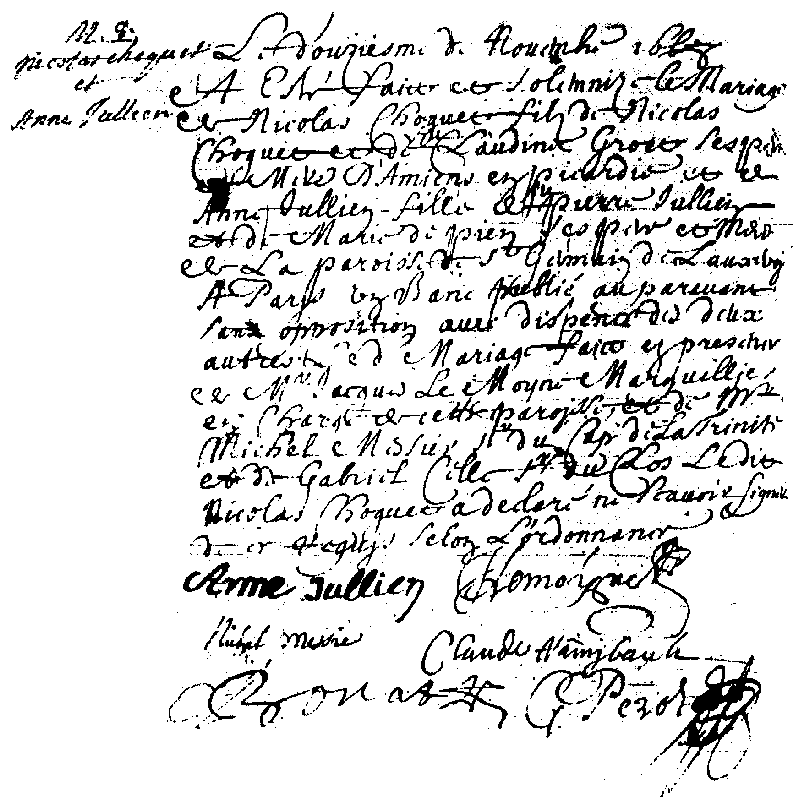 M. &
Nicolas choquet
et
Anne Jullien
Le douziesme de Novembre
A Esté faict et solemnizé le Mariage
de Nicolas Choquet filz de Nicolas
Choquet et de Claudine Grout ses pere
et Mere D'Amiens en picardie et de
Anne Jullien fille de pierre Jullien
et de Marie de pien ses pere et Mere
de La paroisse de St Germain de Lauxerois
A Paris un Banc publié auparavant
sans opposition avec dispence des deux
autres led Mariage faict en presence
de Mre Jacques Le Moyne Marguillier
en Charge de cette paroisse et de
Michel Messier Sr du Cap de La Trinité
et de Gabriel Celle Sr du Clos Ledit
Nicolas Choquet a declaré ne scavoir signer
de ce requis selon L'ordonnance
Anne Jullien J lemoyne
Michel Messie Claude Raimbault
G Perot